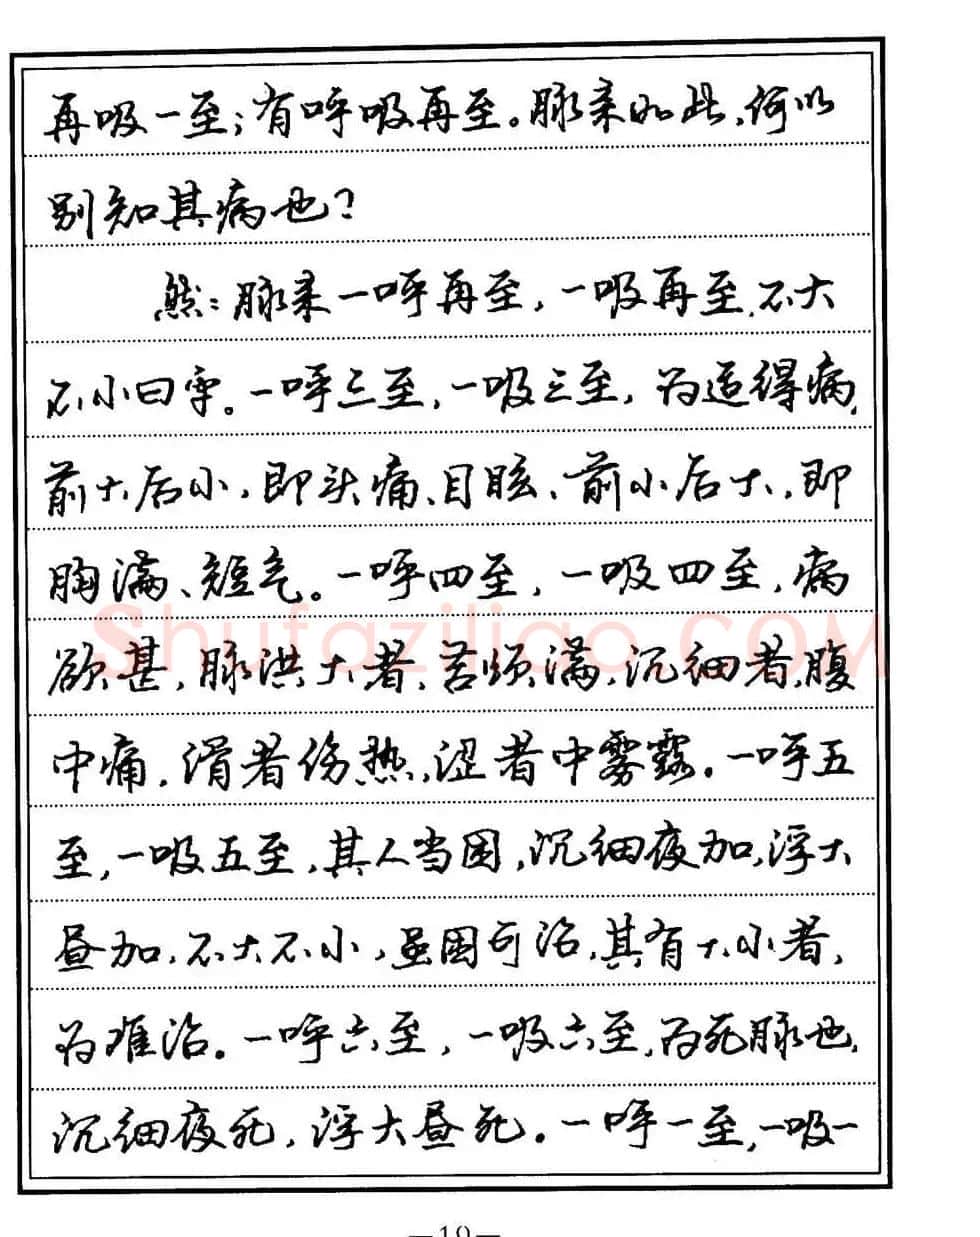 再吸一至；有呼吸再至。脉来如此，何以
别知其病也？
然：脉来一呼再至，一吸再至，不大
不小曰平。一呼三至，一吸三至，为适得病，
前大后小，即头痛、目眩、前小后大，即
胸满、短气。一呼四至，一吸四至，病
欲甚，脉洪大者，苦烦满，沉细者，腹
中痛，滑者伤热，涩者中雾露。一呼五
至，一吸五至，其人当困，沉细夜加，浮大
昼加，不大不小，虽困可治，其有大小者，
为难治。一呼六至，一吸六至，为死脉也，
沉细夜死，浮大昼死。一呼一至，一吸一
Shufaziliao.COM
—19—